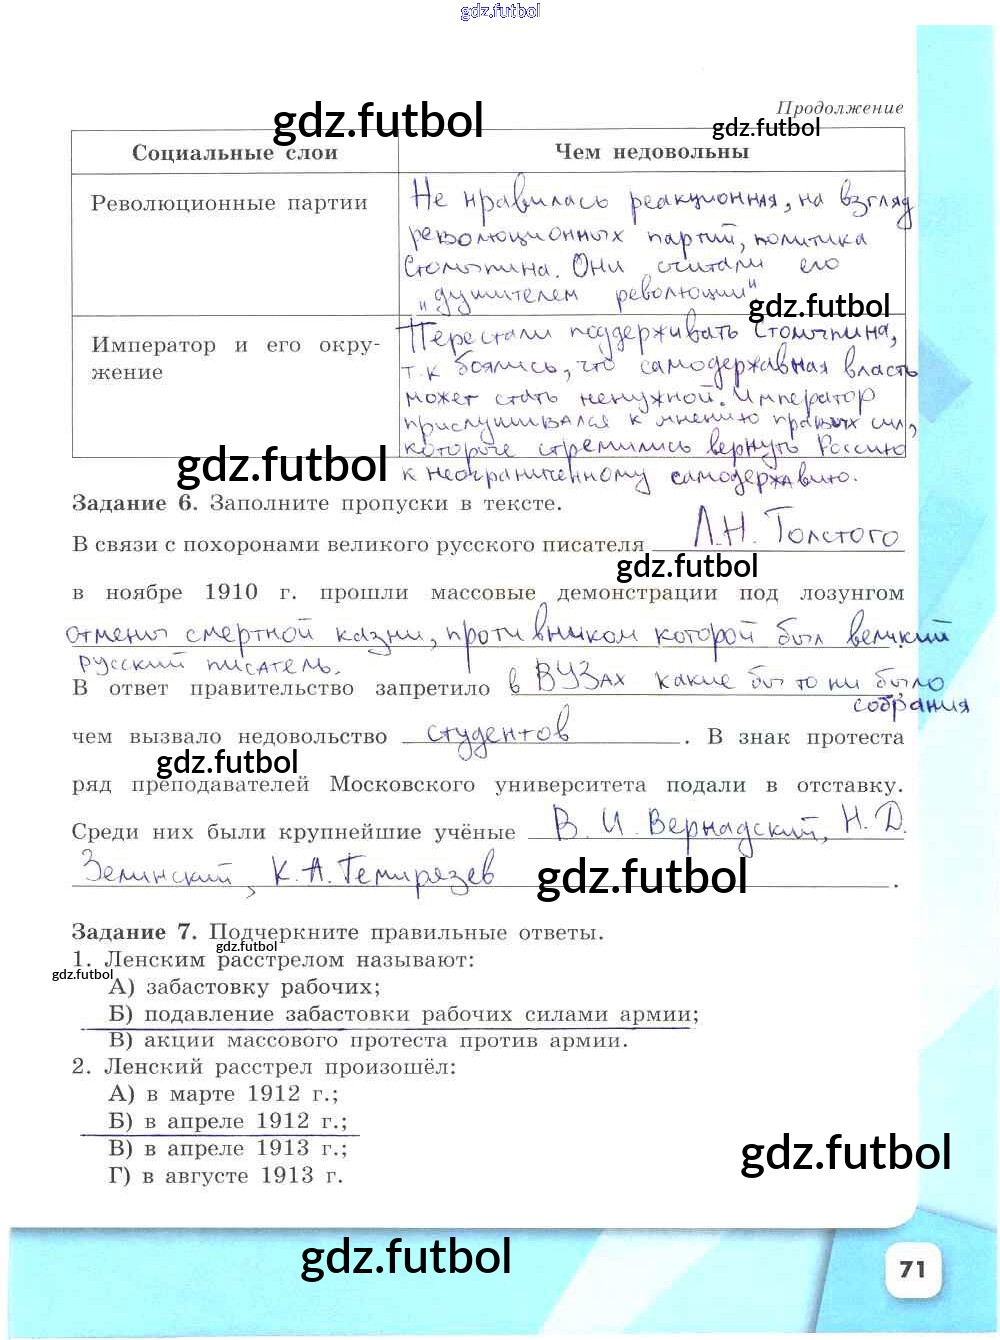 gdz.futbol
Продолжение
gdz.futbol
gdz.futbol
Социальные слои
Чем недовольны
Революционные партии
Не нравилась реакционная, на взгляд
революционных партий, политика
Столыпина. Они считали его
"душителем революции"
gdz.futbol
Император и его окру-
жение
Перестали поддерживать Столыпина,
т.к боялись, что самодержавная власть
может стать ненужной. Император
прислушивался к мнению правых сил,
которые стремились вернуть Россию
к неограниченному самодержавию.
gdz.futbol
Задание 6. Заполните пропуски в тексте.
В связи с похоронами великого русского писателя Л.Н. Толстого
gdz.futbol
в ноябре 1910 г. прошли массовые демонстрации под лозунгом
отмены смертной казни, противником которой был великий
русский писатель.
В ответ правительство запретило в ВУЗах какие бы то ни было
собрания
чем вызвало недовольство студентов. В знак протеста
gdz.futbol
ряд преподавателей Московского университета подали в отставку.
Среди них были крупнейшие учёные В. И. Вернадский, Н. Д.
Зелинский, К. А. Темирязев.
gdz.futbol
Задание 7. Подчеркните правильные ответы.
gdz.futbol
1. Ленским расстрелом называют:
gdz.futbol
А) забастовку рабочих;
Б) подавление забастовки рабочих силами армии;
В) акции массового протеста против армии.
2. Ленский расстрел произошёл:
А) в марте 1912 г.;
Б) в апреле 1912 г.;
В) в апреле 1913 г.;
Г) в августе 1913 г.
gdz.futbol
gdz.futbol
71